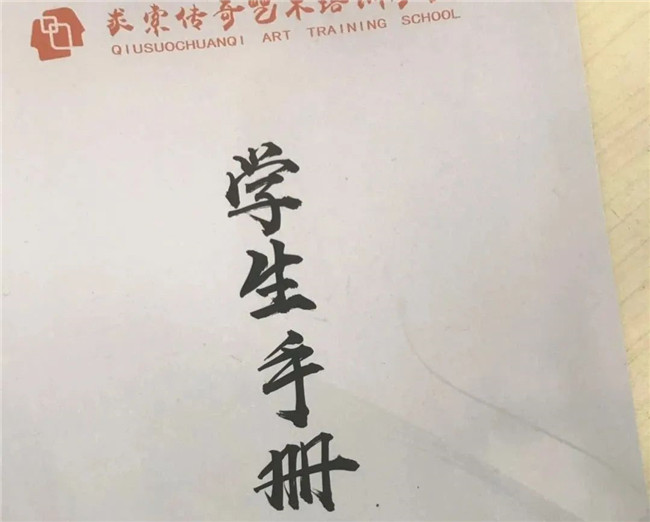 求索传奇艺术培训学
QIUSUOCHUANQI ART TRAINING SCHOOL
学生手册